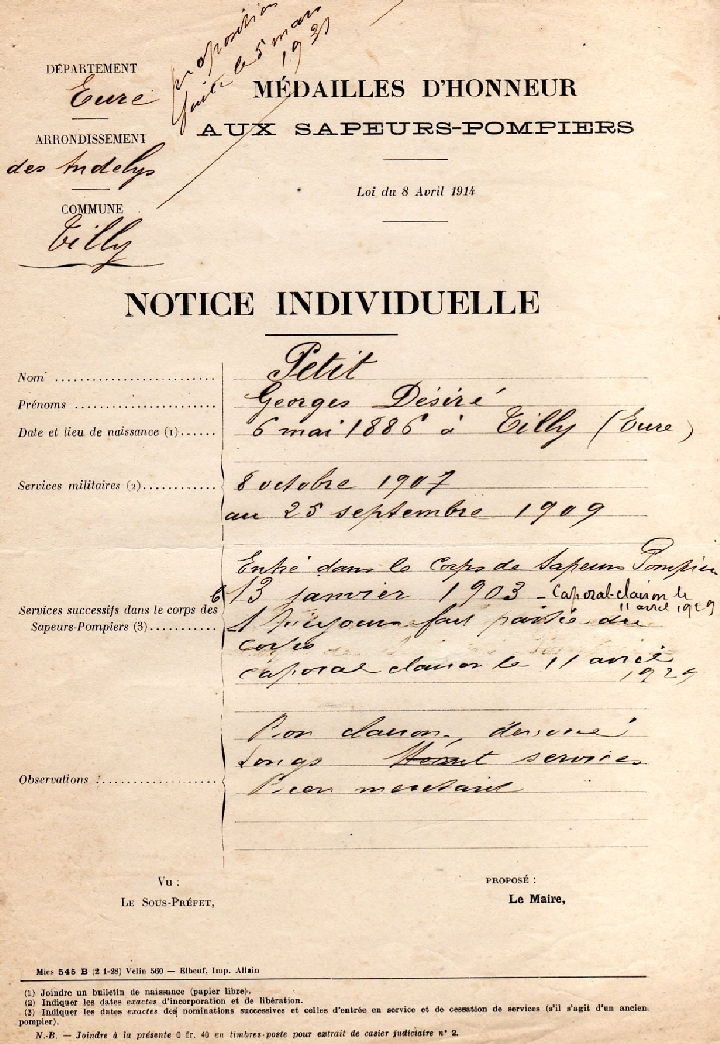 proposition
faite le 5 mars
1931
DÉPARTEMENT
Eure
ARRONDISSEMENT
des Andelys
COMMUNE
Tilly
MÉDAILLES D'HONNEUR
AUX SAPEURS-POMPIERS
Loi du 8 Avril 1914
NOTICE INDIVIDUELLE
Nom Petit
Prénoms Georges Désiré
Date et lieu de naissance (1) 6 mai 1886 à Tilly (Eure)
Services militaires (2) 8 octobre 1907
au 25 septembre 1909
Entré dans le corps de Sapeurs Pompiers
13 janvier 1903 - Caporal-clairon le
11 avril 1929
Services successifs dans le corps des
Sapeurs-Pompiers (3)
toujours fait partie du
corps
caporal clairon le 11 avril
1929
Bon clairon, dévoué
Longs services
Observations
Vu :
LE SOUS-PRÉFET,
PROPOSÉ :
Le Maire,
Mies 545 B (2 1-28) Velin 560 — Elbeuf, Imp. Allain
(1) Joindre un bulletin de naissance (papier libre).
(2) Indiquer les dates exactes d'incorporation et de libération.
(3) Indiquer les dates exactes des nominations successives et celles d'entrée en service et de cessation de services (s'il s'agit d'un ancien
pompier).
N.-B. — Joindre à la présente 0 fr. 40 en timbres-poste pour extrait de casier judiciaire n° 2.